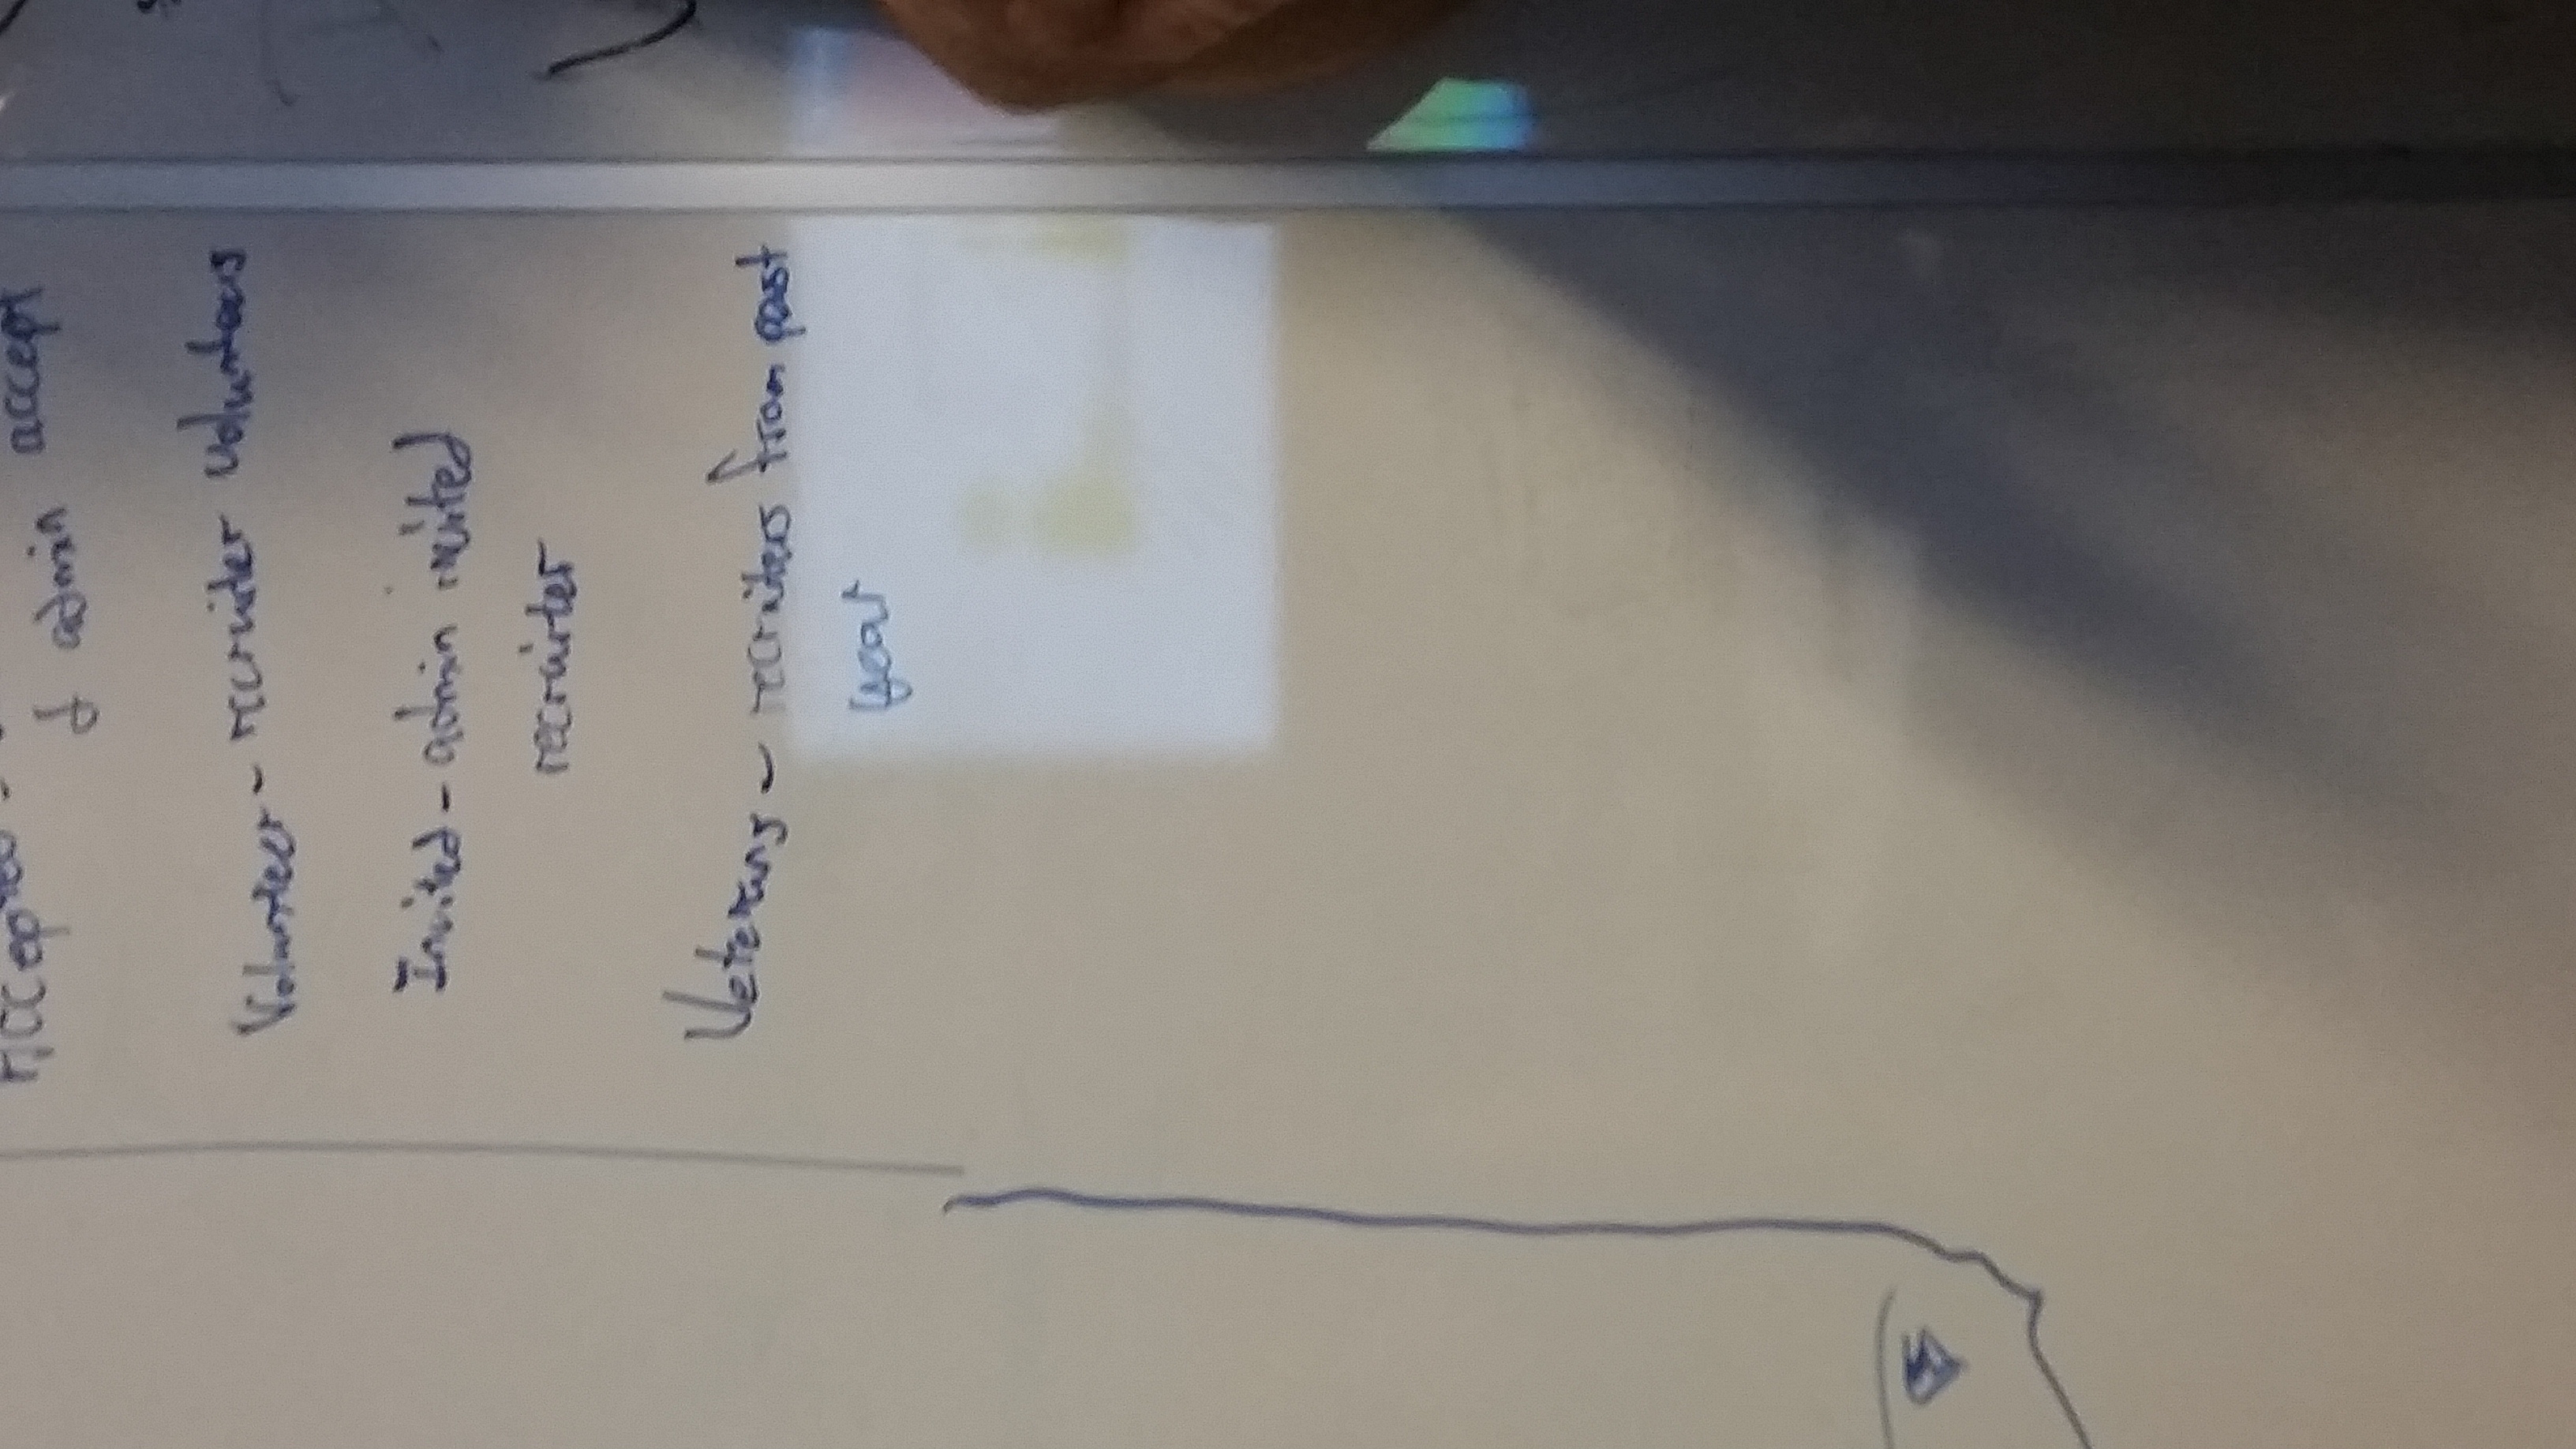 Accepted -
& admin accept
Volunteer - recruiter volunteers
Invited - admin invited
recruiter
Veterans - recruiters from past
year